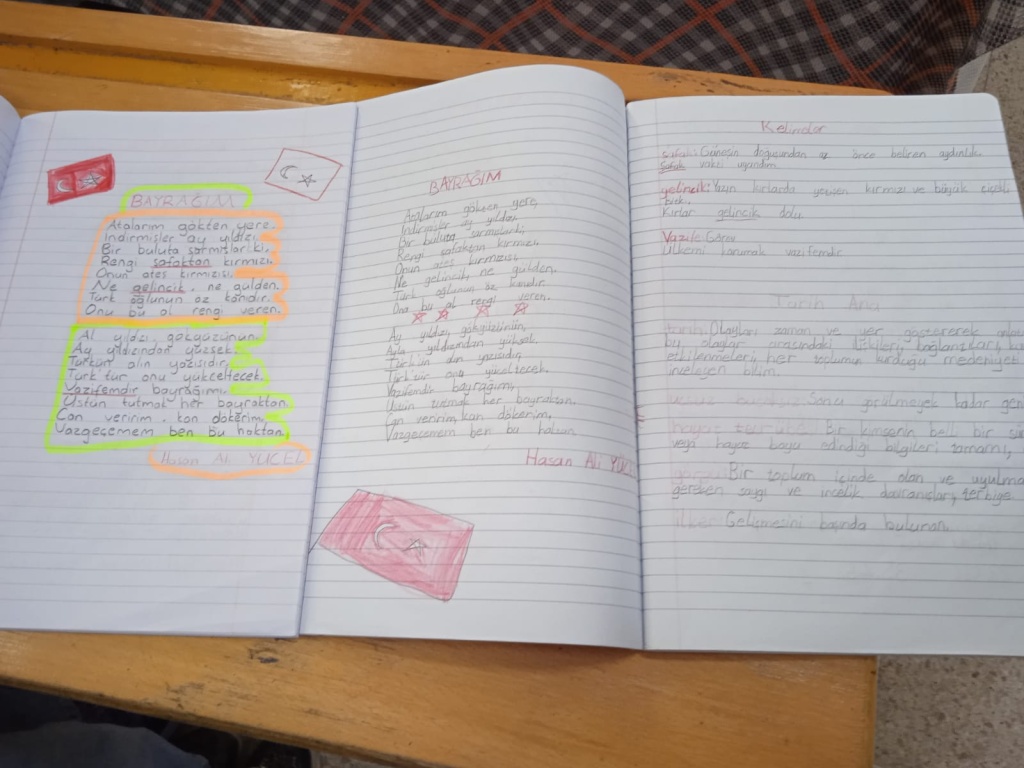 BAYRAĞIM
Atalarım gökten yere.
İndirmişler ay yıldızı,
Bir buluta sarmışlar ki,
Rengi şafaktan kırmızı.
Onun ateş kırmızısı,
Ne gelincik, ne gülden.
Türk oğlunun öz kanıdır.
Onu bu al rengi veren.
Al yıldızı, gökyüzünün,
Ay yıldızından yüksek.
Türkün alın yazısıdır,
Türk'tür onu yükseltecek.
Vazifemdir bayrağımı,
Üstün tutmak her bayraktan.
Can veririm, kan dökerim,
Vazgeçemem ben bu haktan.
Hasan Ali YÜCEL
BAYRAĞIM
Atalarım gökten yere,
İndirmişler ay yıldızı,
Bir buluta sarmışlardı,
Rengi şafaktan kırmızı.
Onun ateş kırmızısı,
Ne gelincik, ne gülden.
Türk oğlunun öz kanıdır
Ona bu al rengi veren.
Ay yıldızı gökyüzünün,
yıldızından yüksek.
Türk'ün alın yazısıdır,
Türk'tür onu yüceltecek.
Vazifemdir bayrağımı,
Üstün tutmak her bayraktan.
Can veririm, kan dökerim,
Vazgeçemem ben bu
Hasan Ali
Kelimeler
şafak: Güneşin doğuşundan az önce beliren aydınlık.
Şafak vakti uyandım.
gelincik: Yazın kırlarda yetişen kırmızı ve büyük çiçekli
bitki.
Kırlar gelincik dolu.
Vazife: Görev
Ülkemi korumak vazifemdir.
Tarih Ana
tarih: Olayları zaman ve yer göstererek
bu olaylar arasındaki ilişkileri, bağlantıları,
etkilenmeleri, her toplumun kurduğu medeniyet
inceleyen bilim.
Sonu görülmeyek kadar
hayat tecrübe: Bir kimsenin belli bir
veya hayat boyu edindiği bilgilerin tamamı,
Bir toplum içinde olan ve uyulma
gereken saygı ve incelik davranışları, terbiye
Gelişmesini başında bulunan.